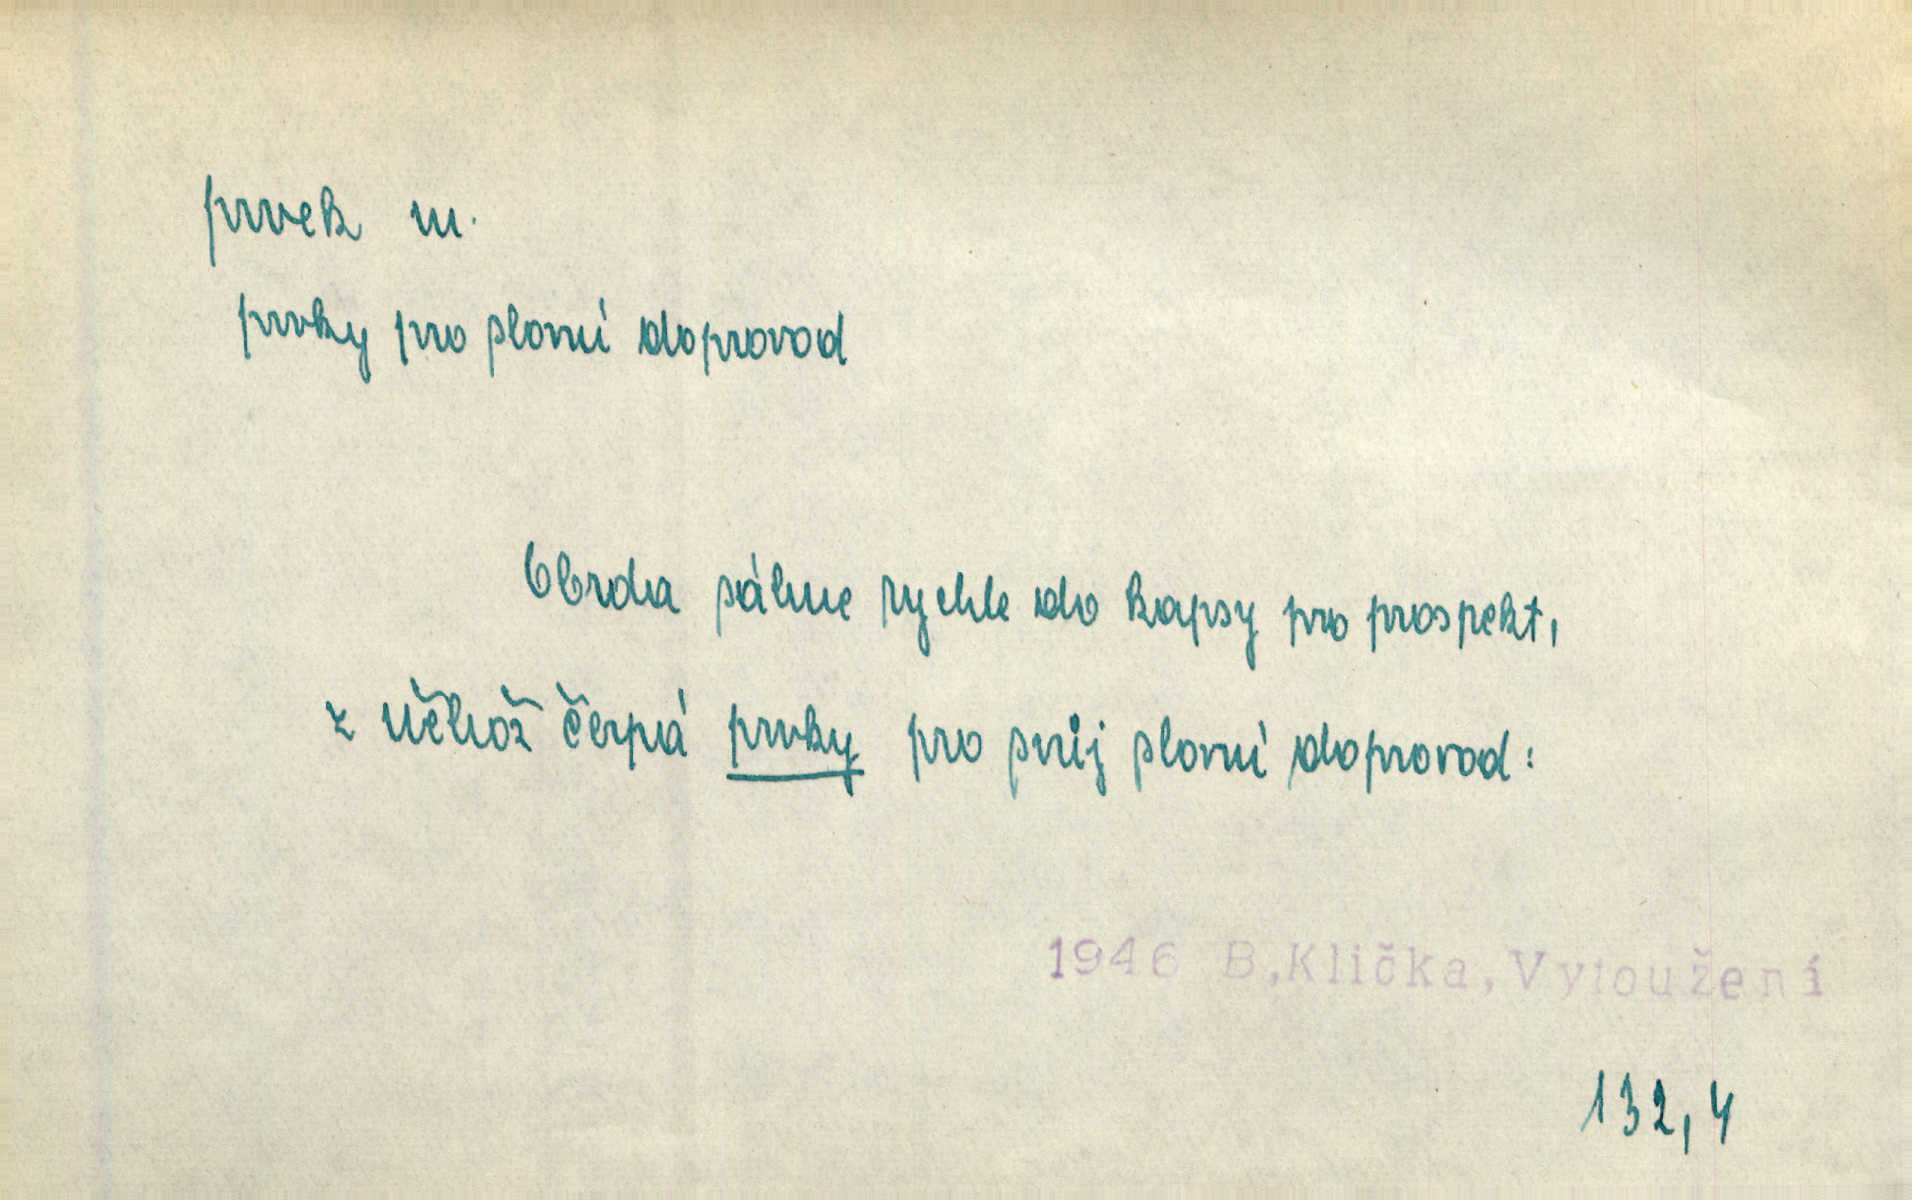 prvek m.
prvky pro slovní doprovod
Obrda sáhne rychle do kapsy pro prospekt,
z něhož čerpá prvky pro svůj slovní doprovod:
1946 B,Klička,Vytoužení
132,4